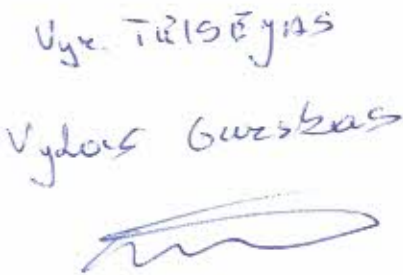 Vyr. TEISĖJAS
Vydas Gurskas